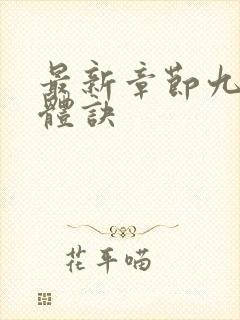 最新章節九
體訣
花平喵